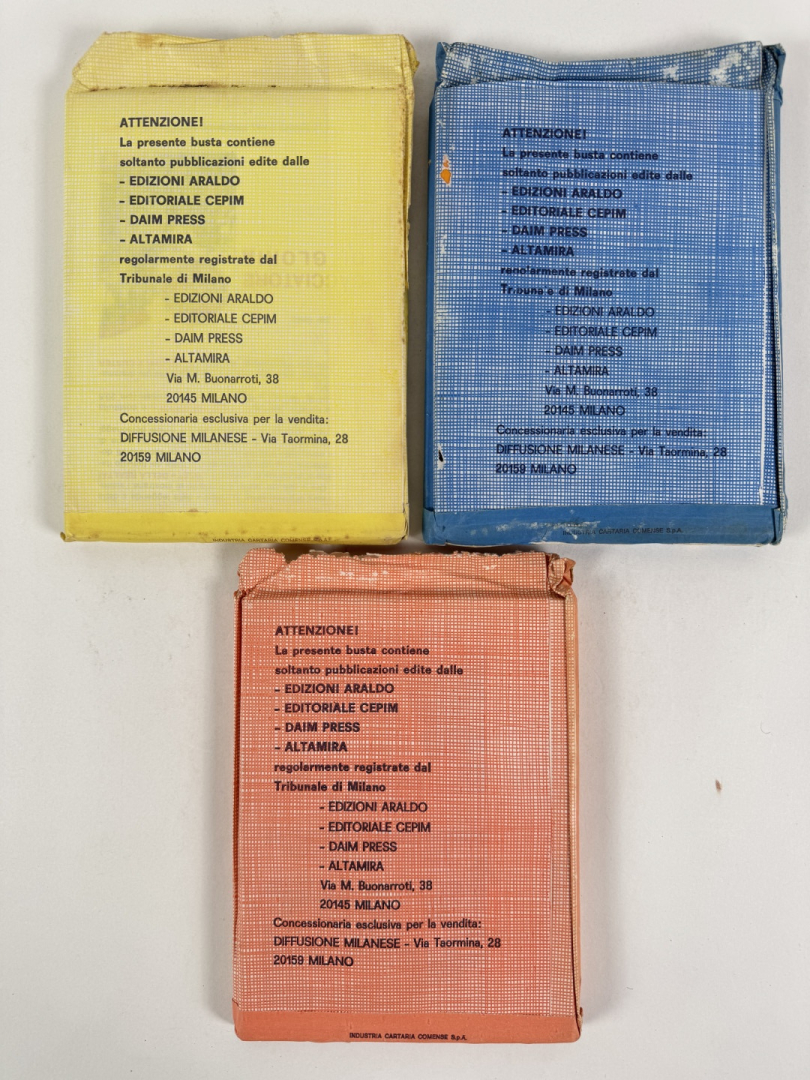 ATTENZIONE!
La presente busta contiene
soltanto pubblicazioni edite dalle
- EDIZIONI ARALDO
- EDITORIALE CEPIM
- DAIM PRESS
- ALTAMIRA
regolarmente registrate dal
Tribunale di Milano
- EDIZIONI ARALDO
- EDITORIALE CEPIM
- DAIM PRESS
- ALTAMIRA
Via M. Buonarroti, 38
20145 MILANO
Concessionaria esclusiva per la vendita:
DIFFUSIONE MILANESE - Via Taormina, 28
20159 MILANO
INDUSTRIA CARTARIA COMENSE S.p.A.
ATTENZIONE!
La presente busta contiene
soltanto pubblicazioni edite dalle
- EDIZIONI ARALDO
- EDITORIALE CEPIM
- DAIM PRESS
- ALTAMIRA
regolarmente registrate dal
Tribunale di Milano
- EDIZIONI ARALDO
- EDITORIALE CEPIM
- DAIM PRESS
- ALTAMIRA
Via M. Buonarroti, 38
20145 MILANO
Concessionaria esclusiva per la vendita:
DIFFUSIONE MILANESE - Via Taormina, 28
20159 MILANO
INDUSTRIA CARTARIA COMENSE S.p.A.
ATTENZIONE!
La presente busta contiene
soltanto pubblicazioni edite dalle
- EDIZIONI ARALDO
- EDITORIALE CEPIM
- DAIM PRESS
- ALTAMIRA
regolarmente registrate dal
Tribunale di Milano
- EDIZIONI ARALDO
- EDITORIALE CEPIM
- DAIM PRESS
- ALTAMIRA
Via M. Buonarroti, 38
20145 MILANO
Concessionaria esclusiva per la vendita:
DIFFUSIONE MILANESE - Via Taormina, 28
20159 MILANO
INDUSTRIA CARTARIA COMENSE S.p.A.